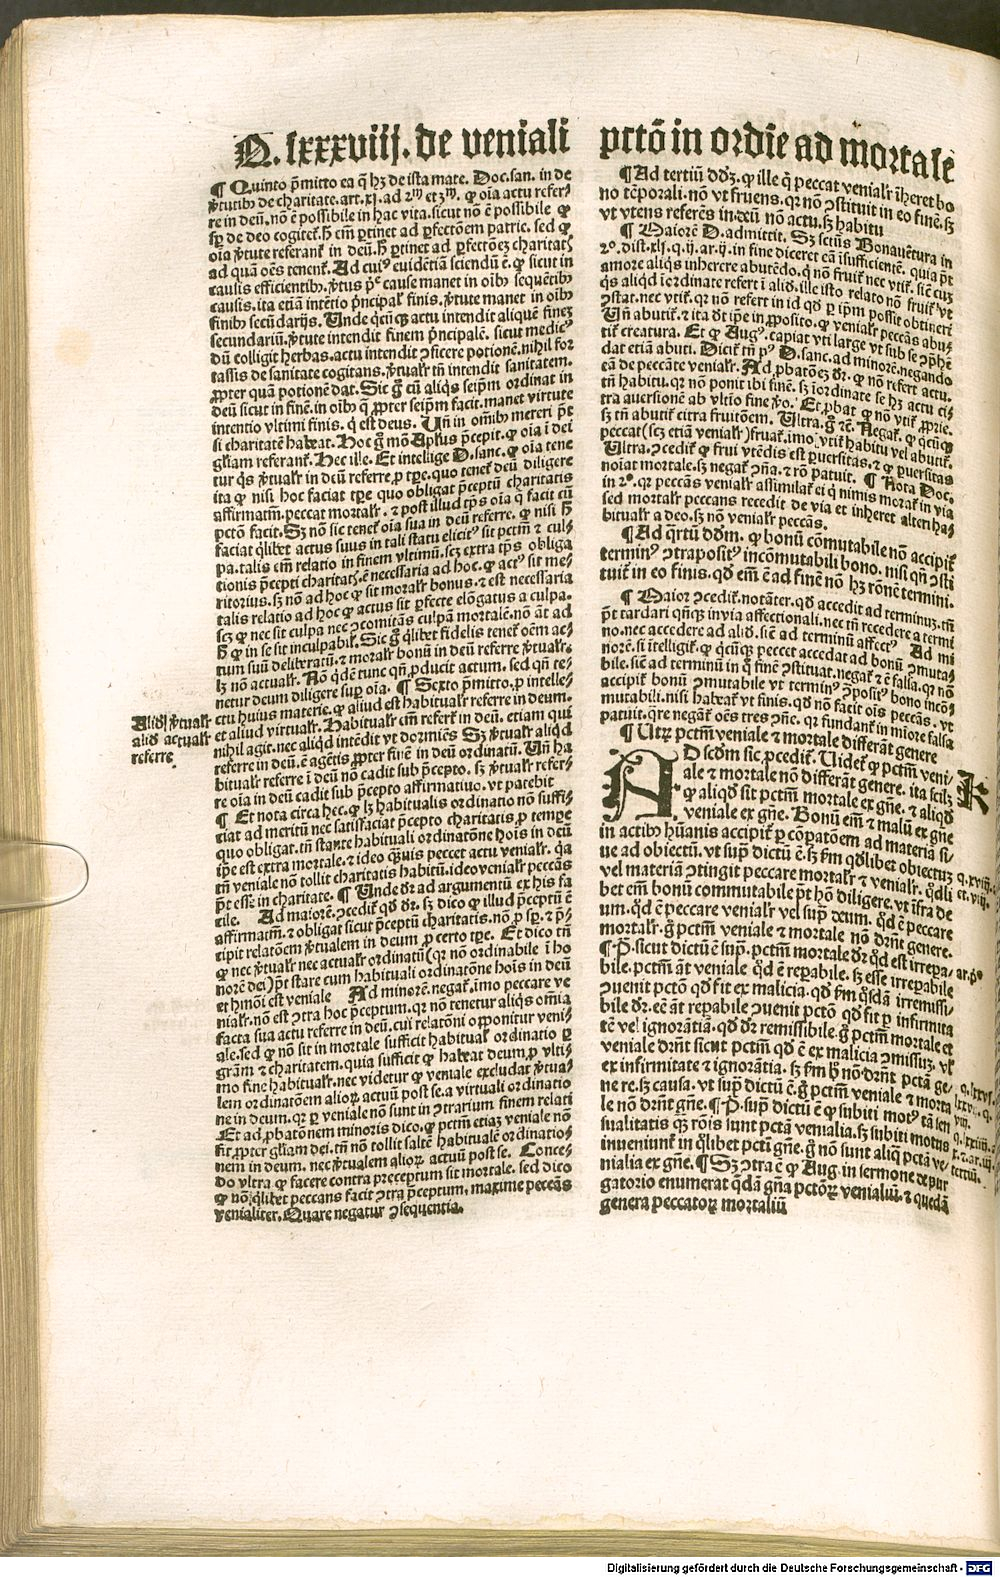 Q. lxxxviij. de veniali pctō in ordīe ad mortale
¶ Quinto p̄mitto ea q̄ hʒ de ista mate. Doc. san. in de
v̓tutibꝫ de charitate. art. xj. ad 2ᵐ et 3ᵐ. ꝙ oīa actu refer⸗
re in deū. nō ē possibile in hac vita. sicut nō ē possibile ꝙ
sp̄ de deo cogitet. h̄ em̄ ꝑtinet ad ꝑfectōem patrie. sed ꝙ
oīa v̓tute referant̉ in deū. h̄ ꝑtinet ad ꝑfectōeʒ charitat̉
ad quā oēs tenent̉. Ad cuiꝰ euidētiā sciendū ē. ꝙ sicut in
causis efficientibꝫ. v̓tus p̄e cause manet in oībꝫ sequētibꝫ
causis. ita etiā intētio p̄ncipal̉ finis. v̓tute manet in oībꝫ
finibꝫ secūdarijs. Unde q̄cūqꝫ actu intendit aliquē fineʒ
secundariū. v̓tute intendit finem p̄ncipalē. sicut medicꝰ
dū colligit herbas. actu intendit ꝯficere potionē. nihil for
tassis de sanitate cogitans. v̓tualr̄ tn̄ intendit sanitatem.
ꝓpter quā potionē dat. Sic g̊ cū aliqs seip̄m ordinat in
deū sicut in finē. in oībꝫ q̄ ꝓpter seip̄m facit. manet virtute
intentio vltimi finis. q̇ est deus. Un̄ in om̄ibꝫ mereri p̄t
si charitatē habeat. Hoc g̊ mō Apl̓us p̄cepit. ꝙ oīa ī dei
gl̓iam referant̉. Hec ille. Et intellige D. sanc. ꝙ oīa tene
tur q̇s v̓tualr̄ in deū referre. ꝓ tꝑe. quo tenet̉ deū diligere
ita ꝙ nisi hoc faciat tꝑe quo obligat p̄ceptū charitatis
affirmatm̄. peccat mortalr̄. ⁊ post illud tp̄s oīa q̄ facit cū
pctō facit. Sʒ nō sic tenet̉ oīa sua in deū referre. ꝙ nisi h̄
faciat q̇libet actus suus in tali statu elicitꝰ sit pctm̄ ⁊ cul⸗
pa. talis em̄ relatio in finem vltimū. scʒ extra tp̄s obliga
tionis p̄cepti charitat̉. ē necessaria ad hoc. ꝙ actꝰ sit me⸗
ritorius. sʒ nō ad hoc ꝙ sit moralr̄ bonus. ⁊ est necessaria
talis relatio ad hoc ꝙ actus sit ꝑfecte elōgatus a culpa.
scʒ ꝙ nec sit culpa nec ꝯcomitās culpā mortalē. nō āt ad
h̄ ꝙ in se sit inculpabil̉. Sic g̊ q̇libet fidelis tenet̉ oēm ac⸗
tum suū deliberatū. ⁊ moralr̄ bonū in deū referre v̓tualr̄.
lʒ nō actualr̄. Nō q̇dē tunc qn̄ ꝓducit actum. sed qn̄ te⸗
netur deum diligere suꝑ oīa. ¶ Sexto p̄mitto. ꝓ intelle⸗
ctu huius materie. ꝙ aliud est habitualr̄ referre in deum.
et aliud virtualr̄. Habitualr̄ em̄ refert̉ in deū. etiam qui
nihil agit. nec aliqd intēdit vt dormiēs Sʒ v̓tualr̄ aliqd
referre in deū. ē agētis ꝓpter finē in deū ordinatū. Un̄ ha
bitualr̄ referre ī deū nō cadit sub p̄cepto. sʒ v̓tualr̄ refer⸗
re oīa in deū cadit sub p̄cepto affirmatiuo. vt patebit
¶ Et nota circa hec. ꝙ lʒ habitualis ordinatio nō suffi⸗
ciat ad meritū nec satisfaciat p̄cepto charitatis ꝓ tempꝰe
quo obligat. tn̄ stante habituali ordinatōne hois in deū
ip̄e est extra mortale. ⁊ ideo q̄uis peccet actu venialr̄. q̇a
tn̄ veniale nō tollit charitatis habitū. ideo venialr̄ peccās
p̄t esse in charitate. ¶ Unde dr̄ ad argumentū ex his fa
cile. Ad maiorē. ꝯcedit̉ qd̄ dr̄. sʒ dico ꝙ illud p̄ceptū ē
affirmatm̄. ⁊ obligat sicut p̄ceptū charitatis. nō ꝓ sp̄. ⁊ p̄⸗
cipit relatōem v̓tualem in deum ꝓ certo tꝑe. Et dico tn̄
ꝙ nec v̓tualr̄ nec actualr̄ ordinatū (qꝛ nō ordinabile ī ho
norē dei) p̄t stare cum habituali ordinatōne hois in deū
et hmōi est veniale Ad minorē. negat̉. imo peccare ve
nialr̄. nō est ꝯtra hoc p̄ceptum. qꝛ nō tenetur aliq̇s om̄ia
facta sua actu referre in deū. cui relatōni opponitur veni⸗
ale. sed ꝙ nō sit in mortale sufficit habitual̉ ordinatio ꝑ
gr̄am ⁊ charitatem. quia sufficit ꝙ habeat deum. ꝓ vlti⸗
mo fine habitualr̄. nec videtur ꝙ veniale excludat v̓tua⸗
lem ordinatōem alioꝝ actuū post se. a virtuali ordinatio
ne in deum. qꝛ ꝑ veniale nō sunt in ꝯtrarium finem relati
Et ad ꝓbatōnem minoris dico. ꝙ pctm̄ etiaʒ veniale nō
fit ꝓpter gl̓iam dei. tn̄ nō tollit saltē habitualē ordinatio⸗
nem in deum. nec v̓tualem alioꝝ actuū post se. Conce⸗
do vltra ꝙ facere contra preceptum sit mortale. sed dico
ꝙ nō q̇libet peccans facit ꝯtra p̄ceptum. maxime peccās
venialiter. Quare negatur ꝯsequentia.
Aliud v̓tualr̄
aliud actualr̄
referre.
¶ Ad tertiū ddʒ. ꝙ ille q̇ peccat venialr̄ īheret bo
no tēporali. nō vt fruens. qꝛ nō ꝯstituit in eo finē. sʒ
vt vtens referēs in deū nō actu. sʒ habitu
¶ Maiorē D. admittit. Sʒ sctūs Bonauētura in
2º. dist. xlj. q. ij. ar. ij. in fine diceret eā īsufficientē. quia p̄t
amore aliq̇s inherere abutēdo. q̇ nō fruit̉ nec vtit̉. siē cuʒ
q̇s aliqd īordinate refert ī aliđ. ille isto relato nō fruit̉ vt
ꝯstat. nec vtit̉. qꝛ nō refert in id qđ ꝑ ip̄m possit obtineri
Un̄ abutit̉. ⁊ ita dt ip̄e in ꝓposito. ꝙ venialr̄ peccās abu⸗
tit̉ creatura. Et ꝙ Augꝰ. capiat vti large vt sub se ꝯphē
dat etiā abuti. Dicit̉ tn̄ pꝰ D. sanc. ad minorē. negando
eā de peccāte venialr̄. Ad ꝓbatōeʒ dr̄. ꝙ nō refert actu.
tn̄ habitu. qꝛ nō ponit ibi finē. sʒ īordinate se hʒ actu ci⸗
tra auersionē ab vltīo fine v̓o. Et ꝓbat ꝙ nō vtit̉ ꝓprie.
sʒ tn̄ abutit̉ citra fruitōem. Ultra. g̊ ⁊c. Negat̉. ꝙ q̄cūqꝫ
peccat (scʒ etiā venialr̄) fruat̉. imo vtit̉ habitu vel abutit̉.
Ultra. ꝯcedit̉ ꝙ frui vtēdis est ꝑuersitas. ⁊ ꝙ ꝑuersitas
noīat mortale. sʒ negat̉ ꝯn̄a. ⁊ rō patuit. ¶ Nota Doc.
in 2º. qꝛ peccās venialr̄ assimilat̉ ei q̇ nimis morat̉ in via
sed mortalr̄ peccans recedit de via et inheret alteri ha⸗
bitualr̄ a deo. sʒ nō venialr̄ peccās.
¶ Ad q̇rtū ddm̄. ꝙ bonū cōmutabile nō accipit̉
terminꝰ ꝯtrapositꝰ incōmutabili bono. nisi qn̄ ꝯsti
tuit̉ in eo finis. qđ em̄ ē ad finē nō hʒ rōnē termini.
¶ Maior ꝯcedit̉. notāter. qđ accedit ad terminuʒ. tn̄
p̄t tardari qn̄qꝫ in via affectionali. nec tn̄ recedere a termi
no. nec accedere ad aliđ. siē ad terminū affectꝰ. Ad mi
norē. si ītelligit̉. ꝙ q̄cūqꝫ peccet accedat ad bonū ꝯmuta⸗
bile. siē ad terminū in q̊ finē ꝯstituat. negat̉ ⁊ ē falsa. qꝛ nō
accipit̉ bonū ꝯmutabile vt terminꝰ ꝯpositꝰ bono incō⸗
mutabili. nisi habeat̉ vt finis. qđ nō facit ois peccās. vt
patuit. q̄re negat̉ oēs tres ꝯn̄e. qꝛ fundant̉ in mīore falsa
¶ Utꝝ pctm̄ veniale ⁊ mortale differāt genere
AD scđm sic ꝓcedit̉. Videt̉ ꝙ pctm̄ veni⸗
ale ⁊ mortale nō differāt genere. ita scilʒ
ꝙ aliqđ sit pctm̄ mortale ex gn̄e. ⁊ aliqđ
veniale ex gn̄e. Bonū em̄ ⁊ malū ex gn̄e
in actibꝫ hūanis accipit̉ ꝑ cōpatōem ad materiā si⸗
ue ad obiectū. vt sup̄ dictū ē. sʒ ẜm qđlibet obiectuʒ
vel materiā ꝯtingit peccare mortalr̄ ⁊ venialr̄. q̊dli
bet em̄ bonū commutabile p̄t hō diligere. vt īfra de
um. qđ ē peccare venialr̄ vel sup̄ deum. qđ ē peccare
mortalr̄. g̊ pctm̄ veniale ⁊ mortale nō drn̄t genere.
¶ P. sicut dictū ē sup̄. pctm̄ mortale dr̄ qđ est irrepa⸗
bile. pctm̄ āt veniale qđ ē repabile. sʒ esse irrepabile
ꝯuenit pctō qđ fit ex malicia. qđ ẜm q̇sdā irremissi⸗
bile dr̄. eē āt repabile ꝯuenit pctō qđ fit ꝑ infirmita
tē vel ignorātiā. qđ dr̄ remissibile. g̊ pctm̄ mortale et
veniale drn̄t sicut pctm̄ qđ ē ex malicia ꝯmissuʒ. vl̓
ex infirmitate ⁊ ignorātia. sʒ ẜm h̄ nō drn̄t pctā ge⸗
ne re. sʒ causa. vt sup̄ dictū ē. g̊ pctm̄ veniale ⁊ morta
le nō drn̄t gn̄e. ¶ P. sup̄ dictū ē ꝙ subiti motꝰ tā sen
sualitatis q̄ꝫ rōis sunt pctā venialia. sʒ subiti motus
inueniunt̉ in q̊libet pcti gn̄e. g̊ nō sunt aliq̇ pctā ve⸗
nialia ex gn̄e. ¶ Sʒ ꝯtra ē ꝙ Aug. in sermone de pur
gatorio enumerat q̇dā gn̄a pctōꝝ venialiū. ⁊ quedā
genera peccatoꝝ mortaliū
K
q. xviij.
et. vij.
ar. pº
q. lxxvi.
q. lxxiiij.
tertiū.
Digitalisierung gefördert durch die Deutsche Forschungsgemeinschaft - DFG